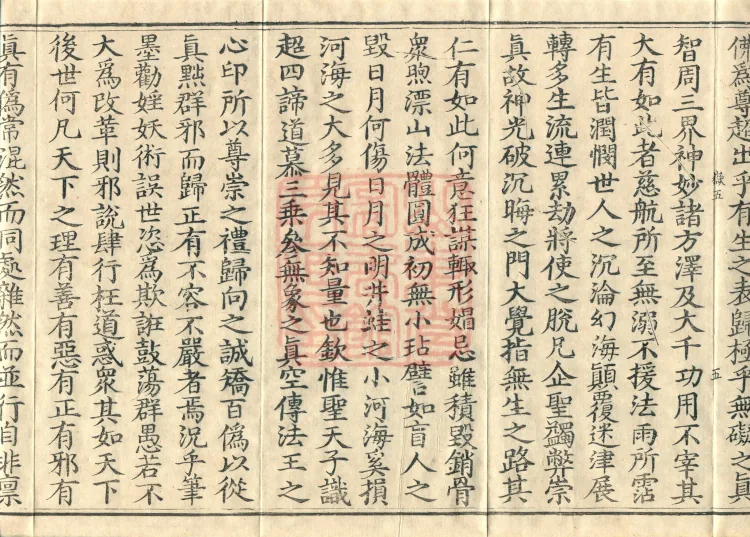 佛爲尊超出乎有生之表歸極乎無礙之眞
智周三界神妙諸方澤及大千功用不宰其
大有如此者慈航所至無溺不援法雨所霑
有生皆潤憫世人之沉淪幻海顚覆迷津展
轉多生流連累劫將使之脫凡企聖蠲弊崇
眞故神光破沉晦之門大覺指無生之路其
仁有如此何意狂謀輙形媢忌雖積毀銷骨
衆喣漂山法體圓成初無小玷譬如盲人之
毀日月何傷日月之明井蛙之小河海奚損
河海之大多見其不知量也欽惟聖天子識
超四諦道慕三乘叅無象之眞空傳法王之
心印所以尊崇之禮歸向之誠矯百僞以從
眞黜群邪而歸正有不容不嚴者焉況乎筆
墨勸婬妖術誤世恣爲欺誑鼓蕩群愚若不
大爲改革則邪說肆行枉道惑衆其如天下
後世何凡天下之理有善有惡有正有邪有
眞有僞常混然而同處雜然而並行自非凛
五